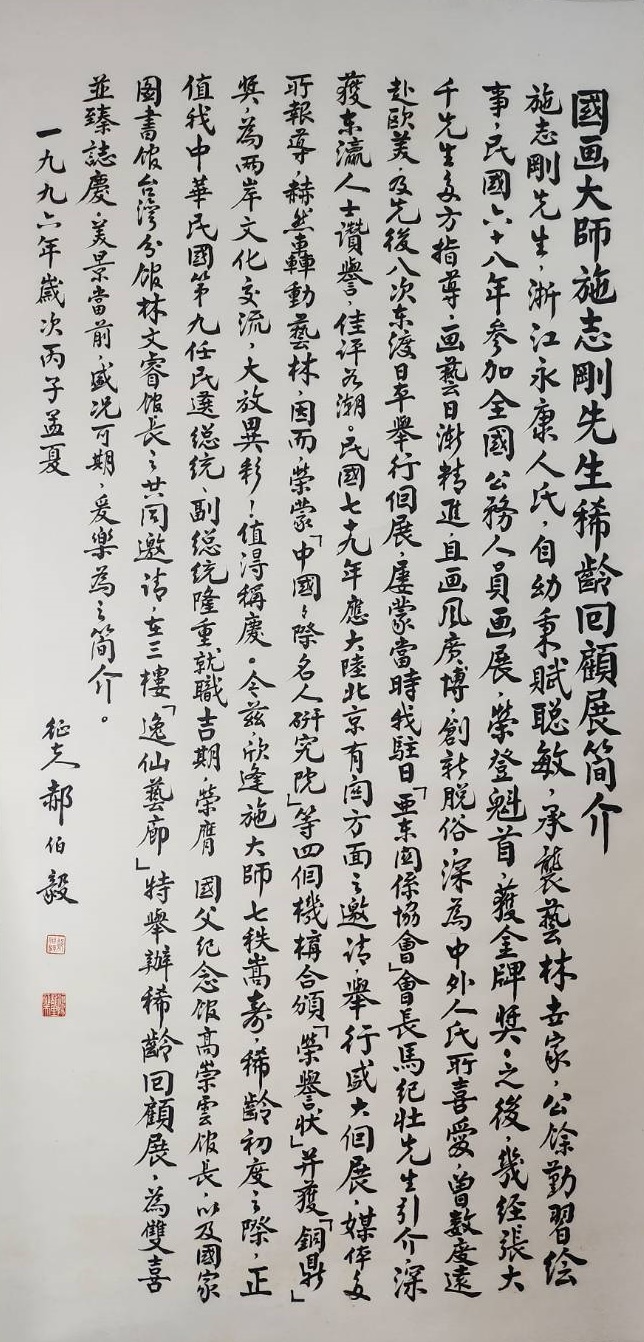 國画大師施志剛先生稀齡回顧展簡介
施志剛先生，浙江永康人氏，自幼秉賦聰敏，承襲藝林世家，公餘勤習绘
事，民國六十八年参加全國公務人員画展，榮登魁首，獲金牌奬，之後，幾经張大
千先生多方指導，画藝日漸精進，且画風广博，創新脱俗，深為中外人氏所喜愛，曾数度遠
赴欧美，及先後八次东渡日本舉行個展，屡蒙當時我駐日「亜东関係協會」會長馬纪壮先生引介，深
獲东瀛人士讚譽，佳评如潮。民國七十九年應大陸北京有関方面之邀请，舉行盛大個展，媒体多
所報導，赫然轟動藝林，因而，榮蒙「中國國際名人研究院」等四個機構合頒「榮譽状」并獲「銅鼎」
奨，為兩岸文化交流，大放異彩！值得稱慶。今兹，欣逢施大師七秩嵩寿，稀齡初度之際，正
值我中華民國第九任民選総统副総统隆重就職吉期，榮膺 國父纪念馆高崇雲馆長，以及國家
图書馆台灣分馆林文睿馆長之共同邀请，在三樓「逸仙藝廊」特舉辦稀齡回顧展，為雙喜
並臻誌慶，美景當前，盛况可期，爰樂為之簡介。
一九九六年歲次丙子孟夏
郝伯毅